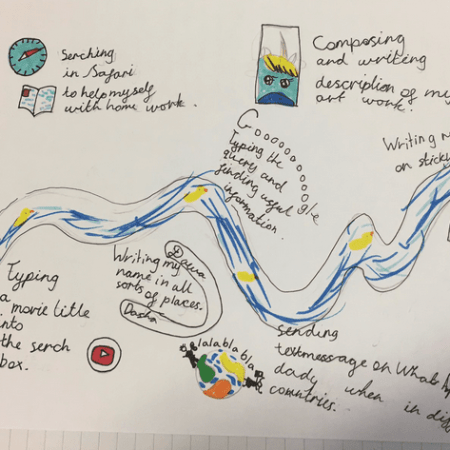 Serching
in Safari
to help myself
with home work.
Composing
and writing
description of my
art work.
Goooooooogle
Typing the
queries and
finding useful
information.
Writing
on sticky
Typing
a
movie title
into
the serch
box.
Writing my
name in all
sorts of places.
Dawa
Dasha
lalablabla
sending
textmessage on
dady when in
countries.